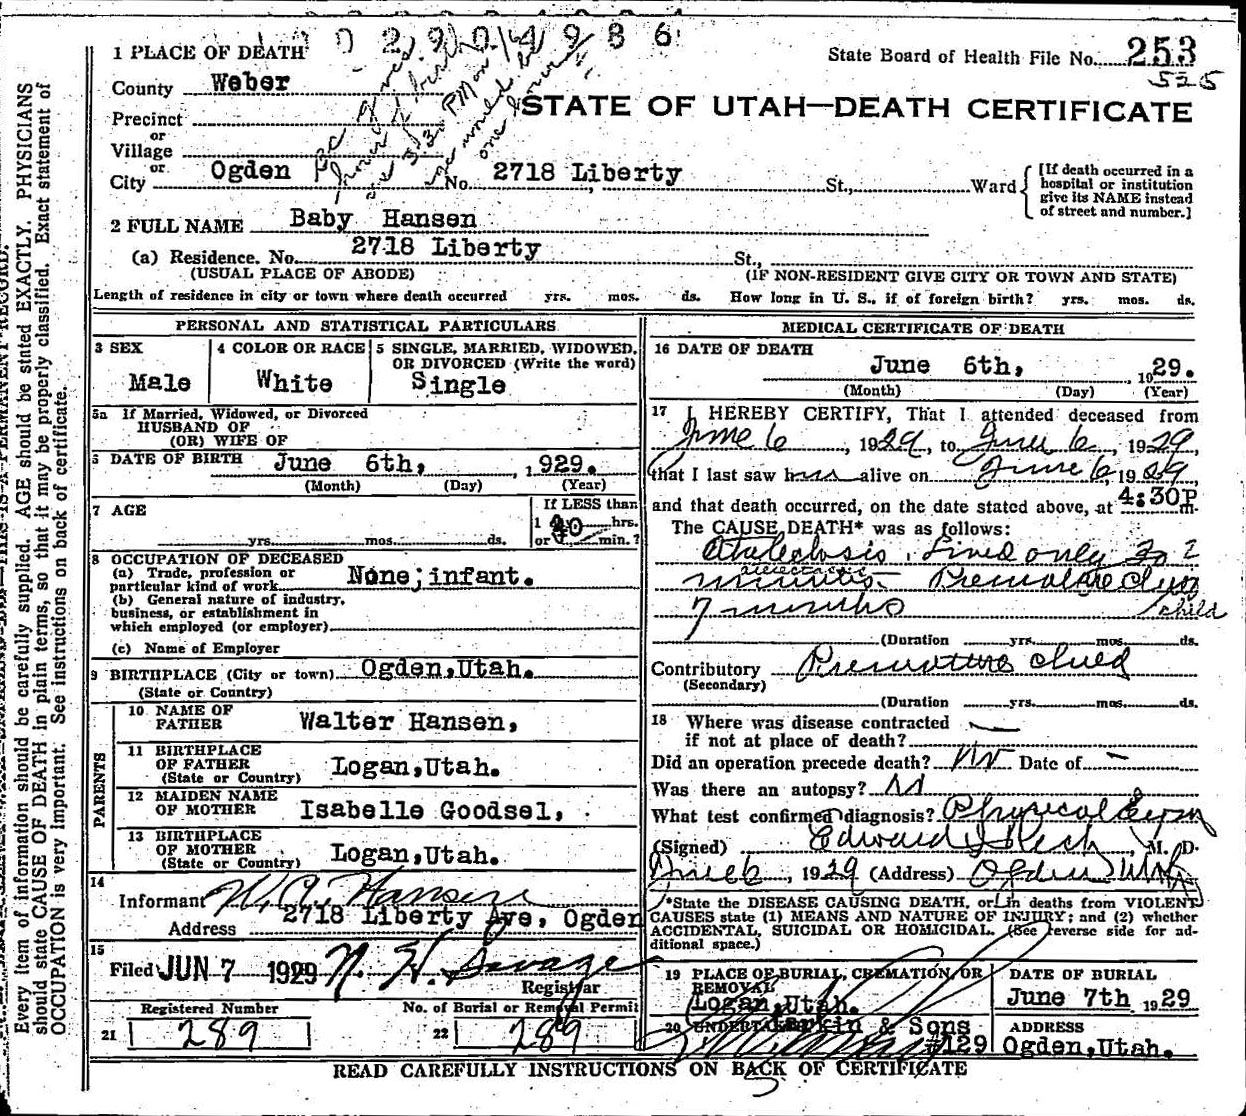 0 2 9 0 4 9 8 6
1 PLACE OF DEATH
State Board of Health File No. 253
525
County Weber
STATE OF UTAH—DEATH CERTIFICATE
Precinct
or
Village
or
City Ogden No. 2718 Liberty St., Ward
[If death occurred in a hospital or institution give its NAME instead of street and number.]
hour of birth
5:30 PM on
one hour
2 FULL NAME Baby Hansen
(a) Residence. No. 2718 Liberty St.,
(USUAL PLACE OF ABODE) (IF NON-RESIDENT GIVE CITY OR TOWN AND STATE)
Length of residence in city or town where death occurred yrs. mos. ds. How long in U. S., if of foreign birth? yrs. mos. ds.
PERSONAL AND STATISTICAL PARTICULARS
3 SEX
Male
4 COLOR OR RACE
White
5 SINGLE, MARRIED, WIDOWED,
OR DIVORCED (Write the word)
Single
5a If Married, Widowed, or Divorced
HUSBAND OF
(OR) WIFE OF
6 DATE OF BIRTH June 6th, 1929.
(Month) (Day) (Year)
7 AGE
yrs. mos. ds.
If LESS than
1 hrs.
or min.?
8 OCCUPATION OF DECEASED
(a) Trade, profession or
particular kind of work None; infant.
(b) General nature of industry,
business, or establishment in
which employed (or employer)
(c) Name of Employer
9 BIRTHPLACE (City or town) Ogden,Utah.
(State or Country)
PARENTS
10 NAME OF
FATHER Walter Hansen,
11 BIRTHPLACE
OF FATHER
(State or Country) Logan,Utah.
12 MAIDEN NAME
OF MOTHER Isabelle Goodsel,
13 BIRTHPLACE
OF MOTHER
(State or Country) Logan,Utah.
14
Informant W. A. Hansen
Address 2718 Liberty Ave, Ogden
15
Filed JUN 7 1929 N. H. Savage
Registrar
Registered Number
21 289
No. of Burial or Removal Permit
22 289
MEDICAL CERTIFICATE OF DEATH
16 DATE OF DEATH
June 6th, 1929.
(Month) (Day) (Year)
17 I HEREBY CERTIFY, That I attended deceased from
June 6, 1929, to June 6, 1929,
that I last saw him alive on June 6, 1929
and that death occurred, on the date stated above, at 4:30P m.
The CAUSE DEATH* was as follows:
Atalectosis. Lived only 30 ?
minutes Premature
7 months child
(Duration yrs. mos. ds.
Contributory Premature child
(Secondary)
(Duration yrs. mos. ds.
18 Where was disease contracted
if not at place of death?
Did an operation precede death? No Date of —
Was there an autopsy? No
What test confirmed diagnosis? Physical Exam
(Signed) Edward I Rich, M. D.
June 6, 1929 (Address) Ogden Utah
*State the DISEASE CAUSING DEATH, or in deaths from VIOLENT
CAUSES state (1) MEANS AND NATURE OF INJURY; and (2) whether
ACCIDENTAL, SUICIDAL OR HOMICIDAL. (See reverse side for ad-
ditional space.)
19 PLACE OF BURIAL, CREMATION, OR
REMOVAL
Logan,Utah.
DATE OF BURIAL
June 7th 1929
20 UNDERTAKER Larkin & Sons
#129
ADDRESS
Ogden,Utah.
READ CAREFULLY INSTRUCTIONS ON BACK OF CERTIFICATE
THIS IS A PERMANENT RECORD.
Every item of information should be carefully supplied. AGE should be stated EXACTLY. PHYSICIANS
should state CAUSE OF DEATH in plain terms, so that it may be properly classified. Exact statement of
OCCUPATION is very important. See instructions on back of certificate.